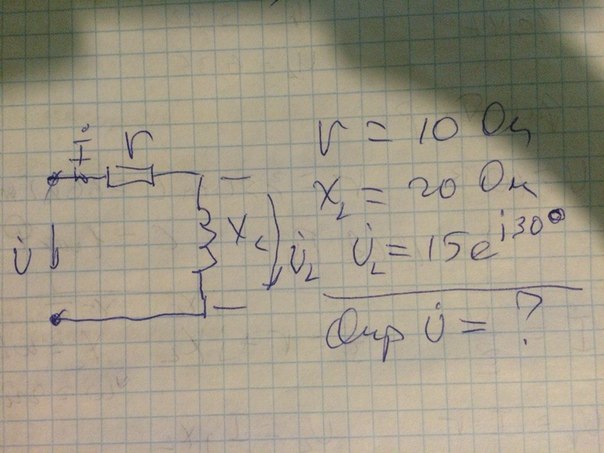 İ
r
U̇
X_L
U̇_L
r = 10 Ом
X_L = 20 Ом
U̇_L = 15e^{j30°}
Опр U̇ = ?